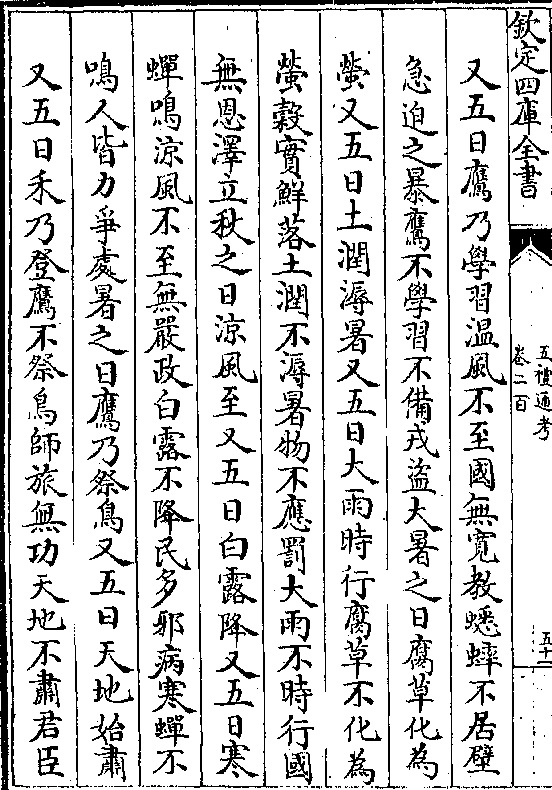 欽定四庫全書
五禮通考
卷二百
五十一
又五日鷹乃學習温風不至國無寛教蟋蟀不居壁
急迫之暴鷹不學習不備戎盜大暑之日腐草化為
螢又五日土潤溽暑又五日大雨時行腐草不化為
螢榖實鮮落土潤不溽暑物不應罰大雨不時行國
無恩澤立秋之日涼風至又五日白露降又五日寒
蟬鳴涼風不至無嚴政白露不降民多邪病寒蟬不
鳴人皆力爭處暑之日鷹乃祭鳥又五日天地始肅
又五日禾乃登鷹不祭鳥師旅無功天地不肅君臣